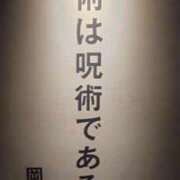 術は呪術である